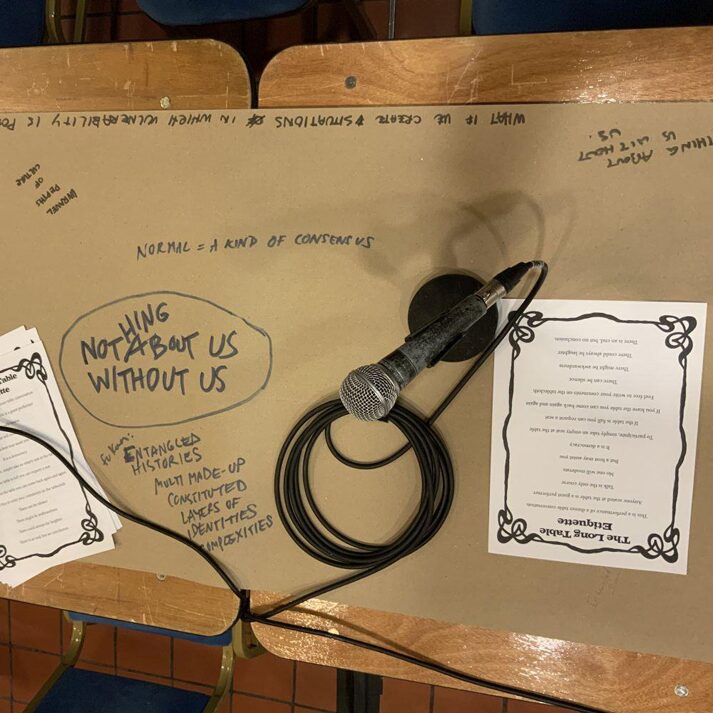 WHAT IF WE CREATE SITUATIONS IN WHICH VULNERABILITY IS
THING ABOUT
US WITHOUT
US.
DEPTHS
OF
CULTURE
NORMAL = A KIND OF CONSENSUS
NOTHING ABOUT US
WITHOUT US
ENTANGLED
HISTORIES
MULTI MADE-UP
CONSTITUTED
LAYERS OF
IDENTITIES
COMPLEXITIES
The Long Table
Etiquette
This is a performance of a dinner conversation
Anyone seated at the table is a guest performer
Talk is the only course
No one will moderate
But a host may assist you
It is a democracy
To participate, simply take an empty seat at the table
If the table is full you can request a seat
If you leave the table you can come back again and again
Feel free to write your comments on the tablecloth
There can be silence
There might be awkwardness
There could always be laughter
There is an end, but no conclusion.